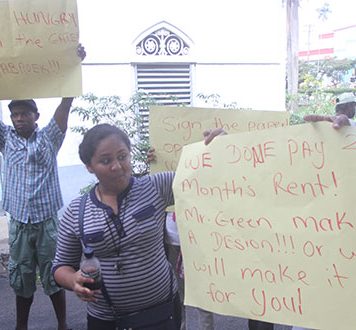 HUNGRY
on the GATE
ABROEK!!!
Sign the paper
WE DONE PAY 2
Month's Rent!
Mr. Green, make
A DESION!!! Or we
will make it
for You!